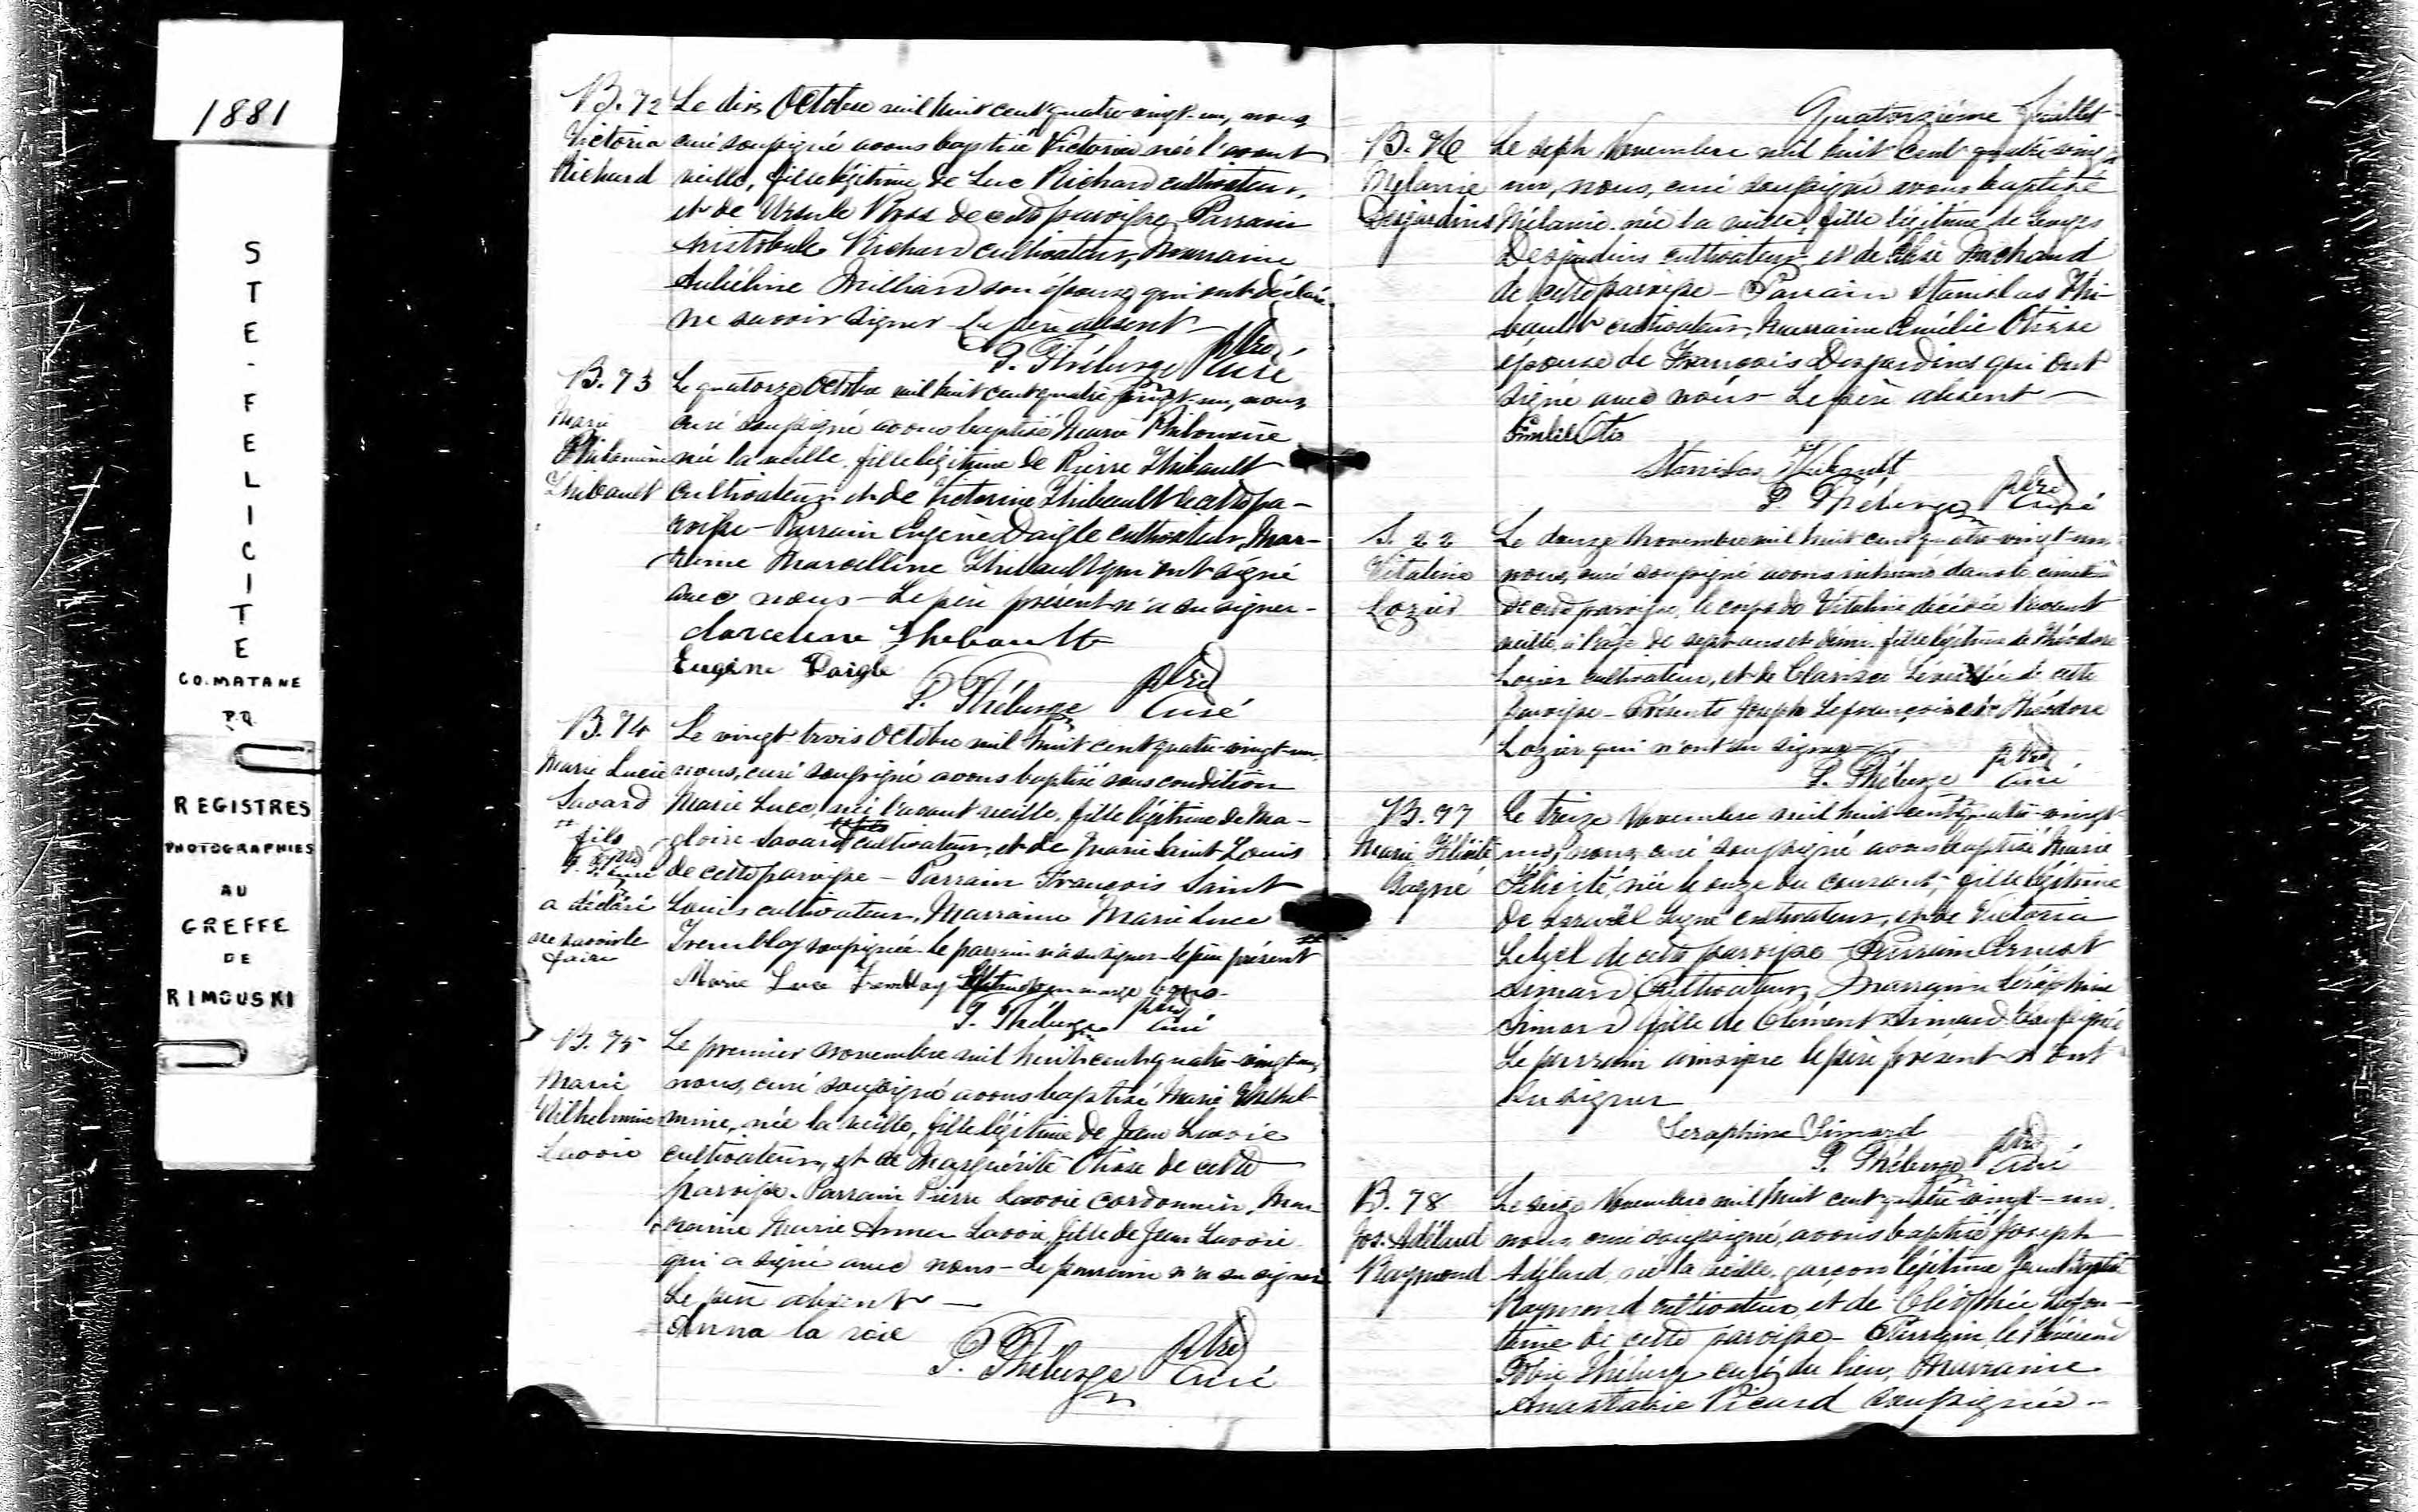 1881
STE-FELICITE
CO. MATANE
P.Q.
REGISTRES
PHOTOGRAPHIES
AU
GREFFE
DE
RIMOUSKI
B. 72
Victoria
Richard
Le dix Octobre mil huit cent quatre-vingt-un, nous,
curé soussigné avons baptisé Victoria née l'avant
veille, fille légitime de Luc Richard cultivateur,
et de Ursule Ross de cette paroisse Parrain
Aristobule Richard cultivateur, Marraine
Milliard son épouse qui ont déclaré
ne savoir signer Le père absent
P. Théberge Ptre
Curé
B. 73
Marie
Philomène
Thibault
Le quatorze Octobre mil huit cent quatre vingt-un, nous,
curé soussigné avons baptisé Marie Philomène
née la veille, fille légitime de Pierre Thibault
cultivateur et de Victorine Thibault de cette pa-
roisse - Parrain Eugène Daigle cultivateur, Mar-
raine Marcelline Thibault qui ont signé
avec nous - Le père présent n'a su signer -
Marceline Thebault
Eugène Daigle
P. Théberge Ptre
Curé
B. 74
Marie Lucie
Savard
fils
a déclaré
ne savoir le
faire
Le vingt-trois Octobre mil huit cent quatre-vingt-un,
nous, curé soussigné avons baptisé sous condition
Marie Luce, née l'avant veille, fille légitime de Ma-
gloire Savard cultivateur, et de Marie Saint Louis
de cette paroisse - Parrain François Saint
Louis cultivateur, Marraine Marie Luce
Tremblay soussignée le parrain n'a su signer - le père présent
Marie Luce Tremblay en marge bons
P. Théberge Ptre
Curé
B. 75
Marie
Wilhelmine
Lavoie
Le premier novembre mil huit cent quatre-vingt-un,
nous, curé soussigné avons baptisé Marie Wilhel-
mine, née la veille, fille légitime de Jean Lavoie
cultivateur, et de Marguérite Otisse de cette
paroisse. Parrain Pierre Lavoie cordonnier, Mar-
raine Marie Anna Lavoie, fille de Jean Lavoie
qui a signé avec nous - Le parrain n'a su signer
Le père absent -
Anna la voie
P. Théberge Ptre
Curé
Quatorzième feuillet
B. 76
Mélanie
Desjardins
Le sept Novembre mil huit cent quatre-vingt
un, nous, curé soussigné avons baptisé
Mélanie née la veille, fille légitime de Georges
Desjardins cultivateur et de Elise Michaud
de cette paroisse - Parrain Stanislas Thi-
bault cultivateur, Marraine Emélie Otisse
épouse de François Desjardins qui ont
signé avec nous - Le père absent -
Emilie Otis
Stanislas Thibault
P. Théberge Ptre
Curé
S. 22
Vitaline
Lozier
Le douze Novembre mil huit cent quatre-vingt-un
nous, curé soussigné avons inhumé dans le cimetière
de cette paroisse, le corps de Vitaline décédée l'avant
veille, à l'âge de sept ans et demi, fille légitime de Théodore
Lozier cultivateur, et de Clarisse Léveillée de cette
paroisse - Présents Joseph Lefrançois et Théodore
Lozier qui n'ont su signer -
P. Théberge Ptre
Curé
B. 77
Marie Félicité
Gagné
Le treize Novembre mil huit cent quatre-vingt-
un, nous, curé soussigné avons baptisé Marie
Félicité, née le onze du courant, fille légitime
de cultivateur, et de Victoria
Lebel de cette paroisse - Parrain Ernest
Simard cultivateur, Marraine Séraphine
Simard fille de Clément Simard soussignée
Le parrain ainsi que le père présent n'ont
su signer
Seraphine Simard
P. Théberge Ptre
Curé
B. 78
Jos. Adélard
Raymond
Le seize Novembre mil huit cent quatre-vingt-un,
nous, curé soussigné, avons baptisé Joseph
Adélard, né la veille, garçon légitime Jean Baptiste
Raymond cultivateur, et de Cléophée Lafon-
taine de cette paroisse - Parrain, le Révérend
Théberge curé du lieu, Marraine
Anastasie Picard soussignée -